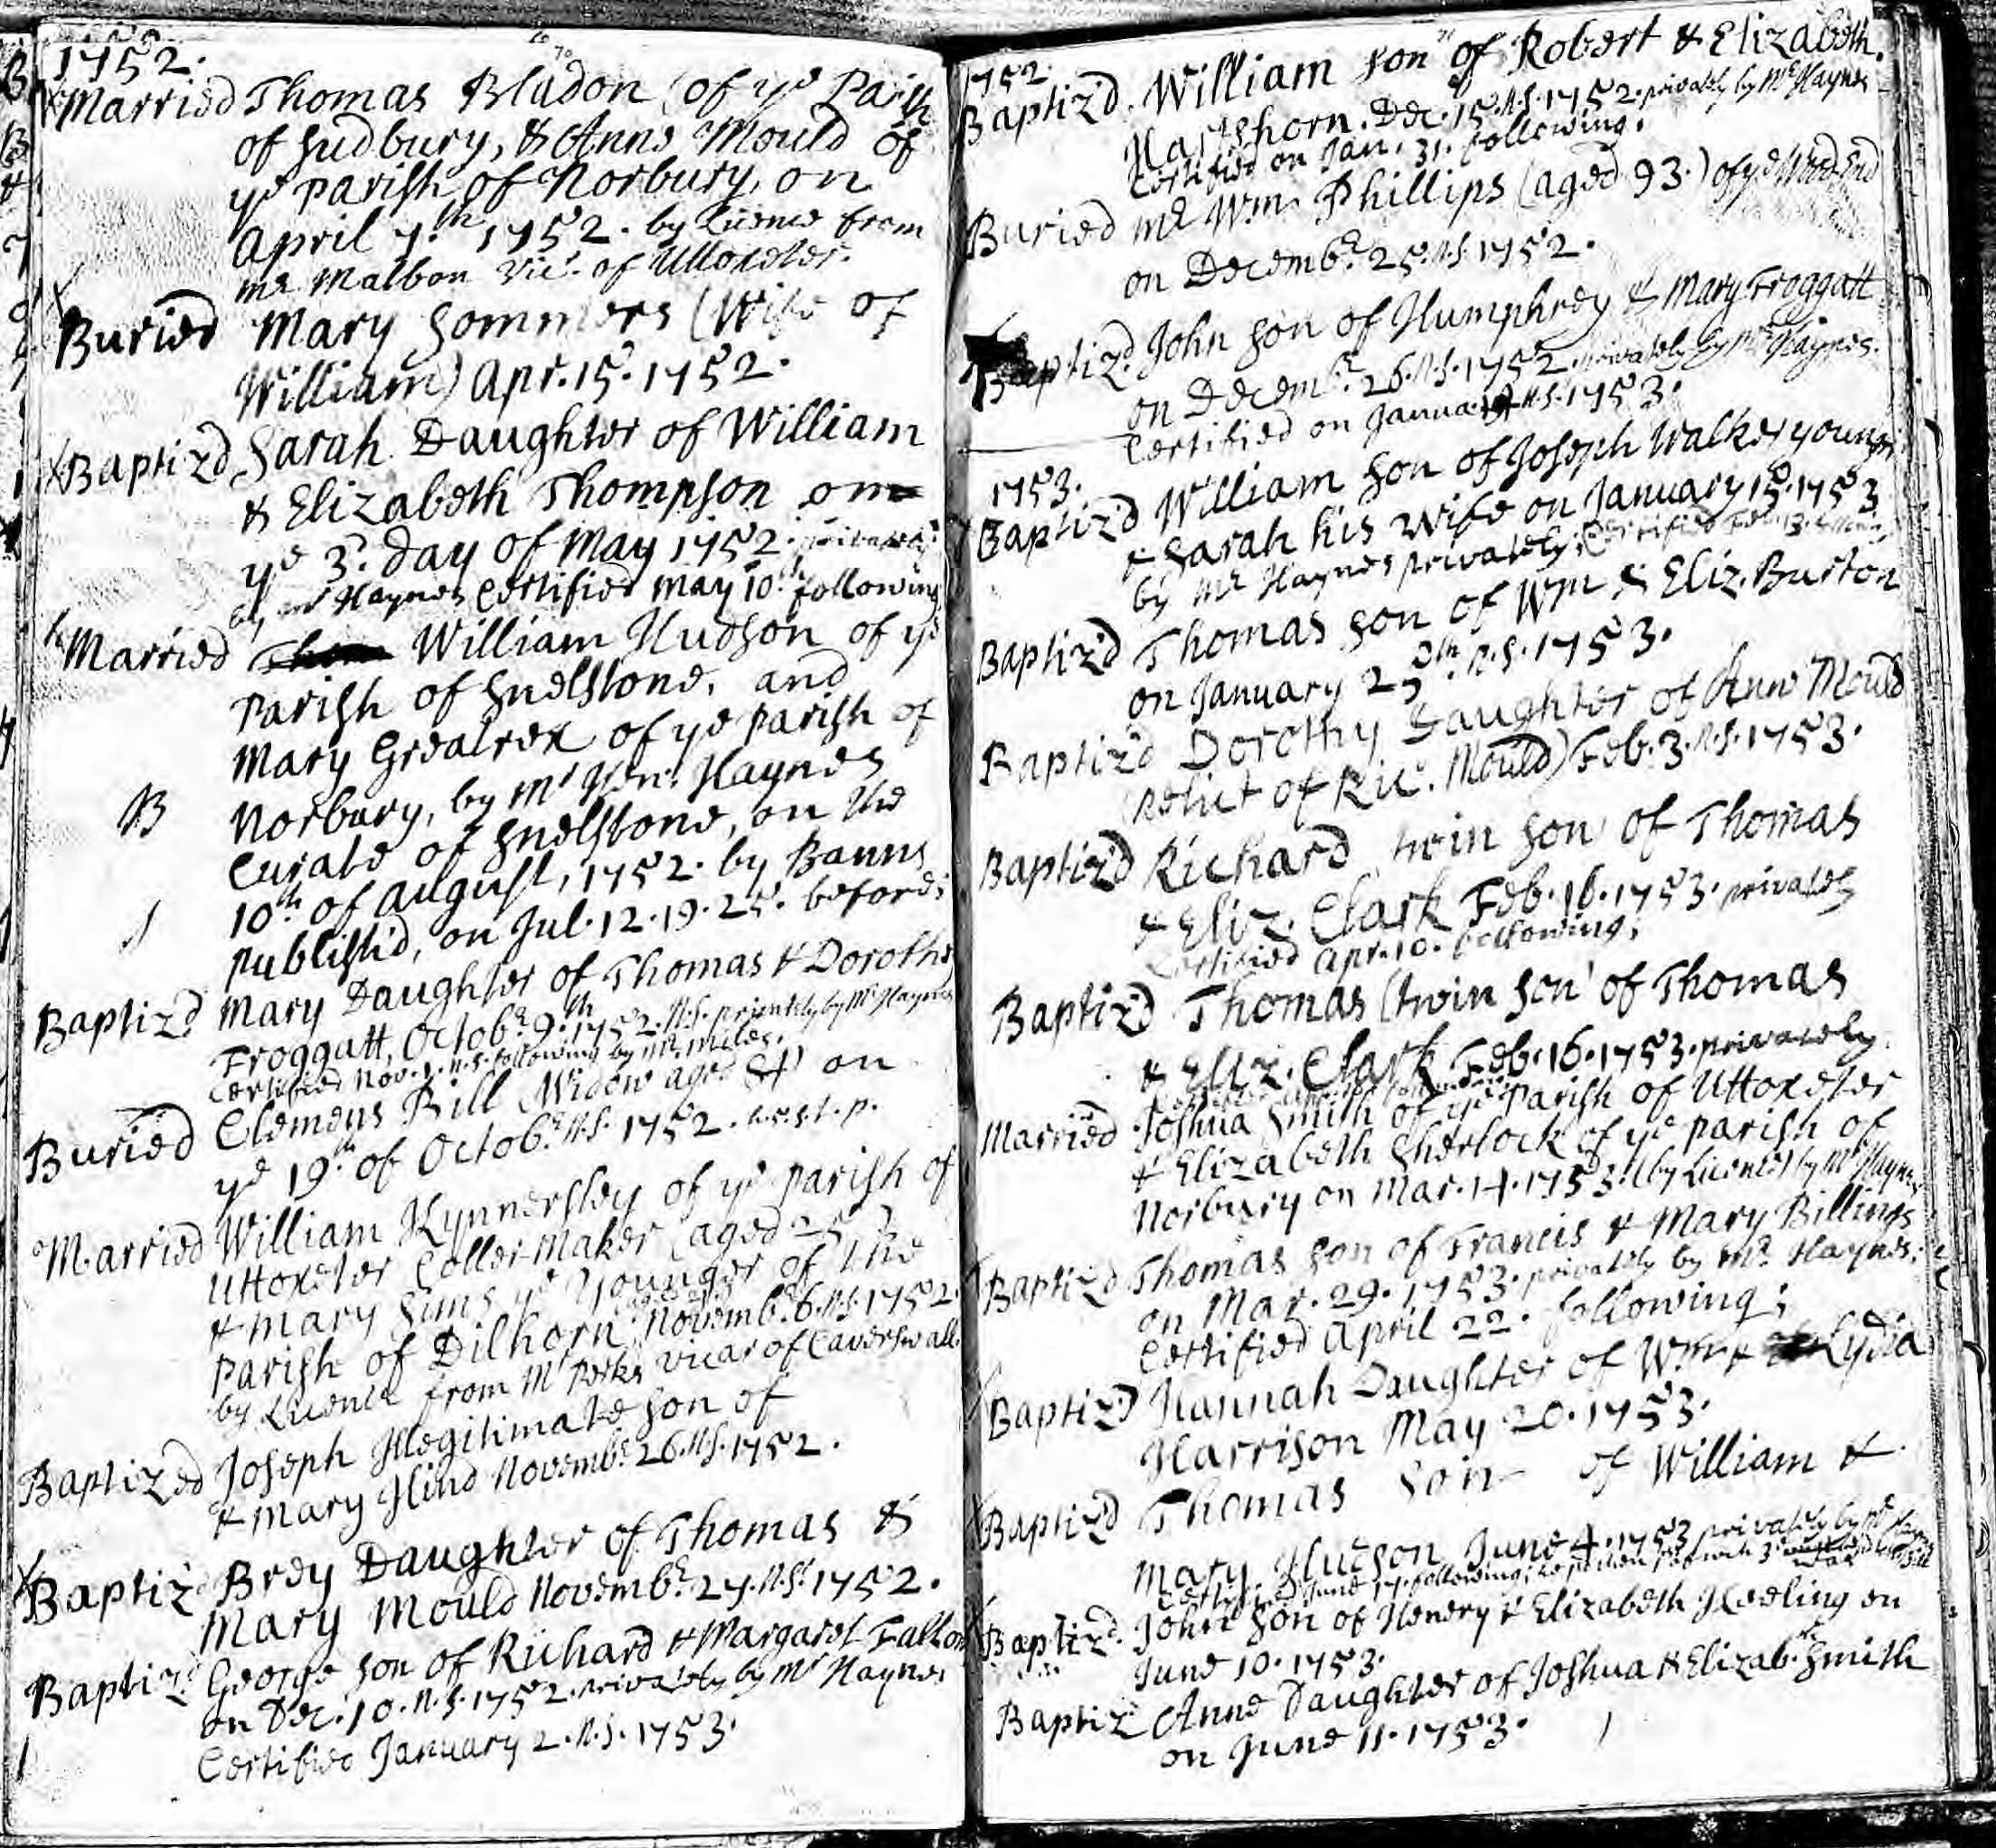 1752.
Married Thomas Bladon (of ye Parish
of Sudbury, & Anne Mould of
ye Parish of Norbury, on
April 7th 1752. by Licence from
Mr. Malbon Vicr. of Uttoxeter.
Buried Mary Sommers (Wife of
William) Apr. 15. 1752.
Baptiz'd Sarah Daughter of William
& Elizabeth Thompson on
ye 3d. day of May 1752. privately
by Mr Haynes Certified May 10th. following
Married William Hudson of ye
Parish of Snelstone, and
Mary Grealrex of ye Parish of
B Norbury, by Mr Wm. Haynes
Curate of Snelstone, on the
10th of August, 1752. by Banns
publish'd, on Jul. 12. 19. 25. before;
Baptiz'd Mary Daughter of Thomas & Dorothy
Froggatt, Octobr. 9th. 1752. N.S. privately by Mr Haynes
Certified Nov. 1. N.S. following by Mr. Miles.
Buried Clemens Bill Widow aged on
ye 19th of Octobr. N.S. 1752.
Married William Kynnersley of ye parish of
Uttoxeter Coller-maker (aged 25)
& Mary Sims ye Younger of the
Parish of Dilhorn, Novembr. 6. N.S. 1752
by Licence from Mr Perks Vicar of Caverswall.
Baptized Joseph Illegitimate Son of
& Mary Hind Novembr. 26. N.S. 1752.
Baptiz'd Brey Daughter of Thomas &
Mary Mould Novembr. 27. N.S. 1752.
Baptiz'd George Son of Richard & Margaret Fallon
on Dec. 10. N.S. 1752. privately by Mr Haynes
Certified January 2. N.S. 1753.
1752.
Baptiz'd. William Son of Robert & Elizabeth
Hartshorn. Dec. 15. N.S. 1752. privately by Mr Haynes
Certified on Jan. 31. following.
Buried Mr. Wm. Phillips (aged 93.) of ye Wood End
on Decembr. 25. N.S. 1752.
Baptiz'd. John Son of Humphrey & Mary Froggatt
on Decembr. 26. N.S. 1752. privately by Mr Haynes.
Certified on January N.S. 1753.
1753.
Baptiz'd William Son of Joseph Walker younger
& Sarah his Wife on January 15. 1753
by Mr. Haynes privately; Certified Feb. 13. following
Baptiz'd Thomas Son of Wm & Eliz. Burton
on January 25th. N.S. 1753.
Baptiz'd Dorothy Daughter of Ann Mould
(Relict of Ric. Mould) Feb. 3. N.S. 1753.
Baptiz'd Richard twin Son of Thomas
& Eliz. Clark Feb. 16. 1753. privately
Certified Apr. 10. following;
Baptiz'd Thomas (twin Son of Thomas
& Eliz. Clark Feb. 16. 1753. privately.
Married Joshua Smith of ye Parish of Uttoxeter
& Elizabeth Sherlock of ye parish of
Norbury on Mar. 14. 1753. (by Licence) by Mr Haynes
Baptiz'd Thomas Son of Francis & Mary Billings
on Mar. 29. 1753. privately by Mr. Haynes;
Certified April 22. following;
Baptiz'd Hannah Daughter of Wm & Lydia
Harrison May 20. 1753.
Baptiz'd Thomas Son of William &
Mary Hudson June 4. 1753 privately by Mr Haynes
Certified June 17. following;
Baptiz'd. John Son of Henery & Elizabeth Keeling on
June 10. 1753.
Baptiz'd Anne Daughter of Joshua & Elizab. Smith
on June 11. 1753.